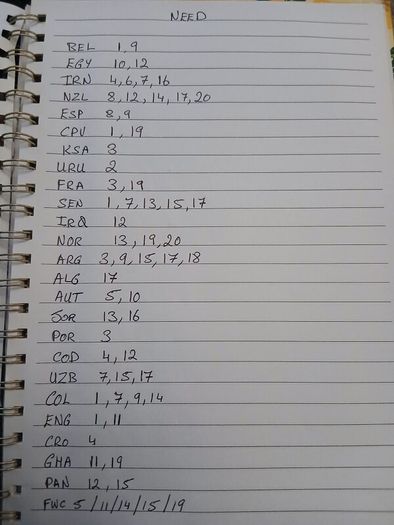 NEED
BEL 1, 9
EGY 10, 12
IRN 4, 6, 7, 16
NZL 8, 12, 14, 17, 20
ESP 8, 9
CPV 1, 19
KSA 3
URU 2
FRA 3, 19
SEN 1, 7, 13, 15, 17
IRQ 12
NOR 13, 19, 20
ARG 3, 9, 15, 17, 18
ALG 17
AUT 5, 10
JOR 13, 16
POR 3
COD 4, 12
UZB 7, 15, 17
COL 1, 7, 9, 14
ENG 1, 11
CRO 4
GHA 11, 19
PAN 12, 15
FWC 5/11/14/15/19